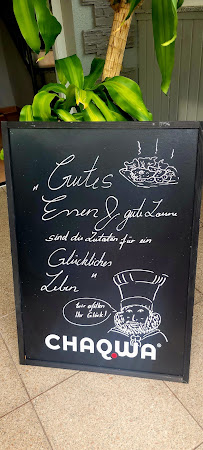 „Gutes
Essen & gute Laune
sind die Zutaten für ein
Glückliches
Leben"
Wir
Ihr Glück!
CHAQWA